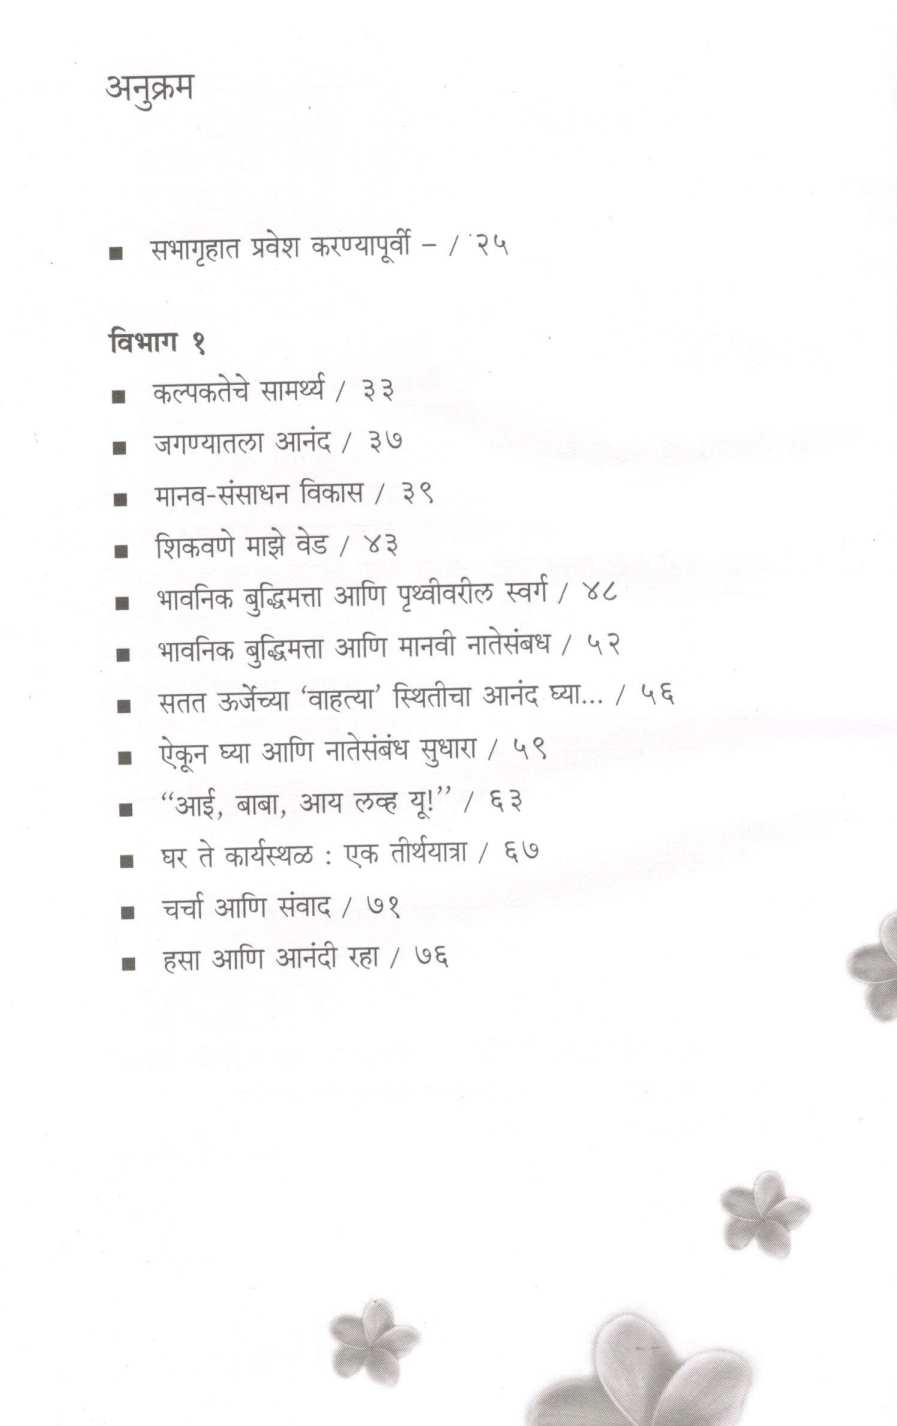 अनुक्रम
■ सभागृहात प्रवेश करण्यापूर्वी – / २५
विभाग १
■ कल्पकतेचे सामर्थ्य / ३३
■ जगण्यातला आनंद / ३७
■ मानव-संसाधन विकास / ३९
■ शिकवणे माझे वेड / ४३
■ भावनिक बुद्धिमत्ता आणि पृथ्वीवरील स्वर्ग / ४८
■ भावनिक बुद्धिमत्ता आणि मानवी नातेसंबध / ५२
■ सतत ऊर्जेच्या ‘वाहत्या’ स्थितीचा आनंद घ्या... / ५६
■ ऐकून घ्या आणि नातेसंबंध सुधारा / ५९
■ “आई, बाबा, आय लव्ह यू!” / ६३
■ घर ते कार्यस्थळ : एक तीर्थयात्रा / ६७
■ चर्चा आणि संवाद / ७१
■ हसा आणि आनंदी रहा / ७६